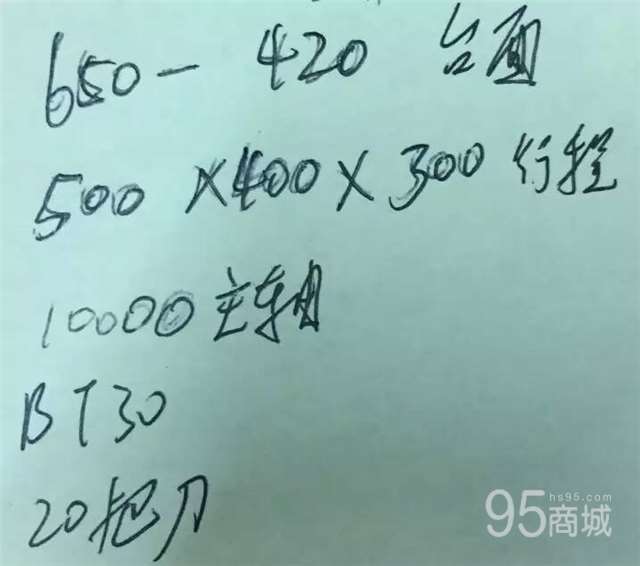 650－420 台面
500×400×300 行程
10000主轴
BT30
20把刀
95商城
hs95.com